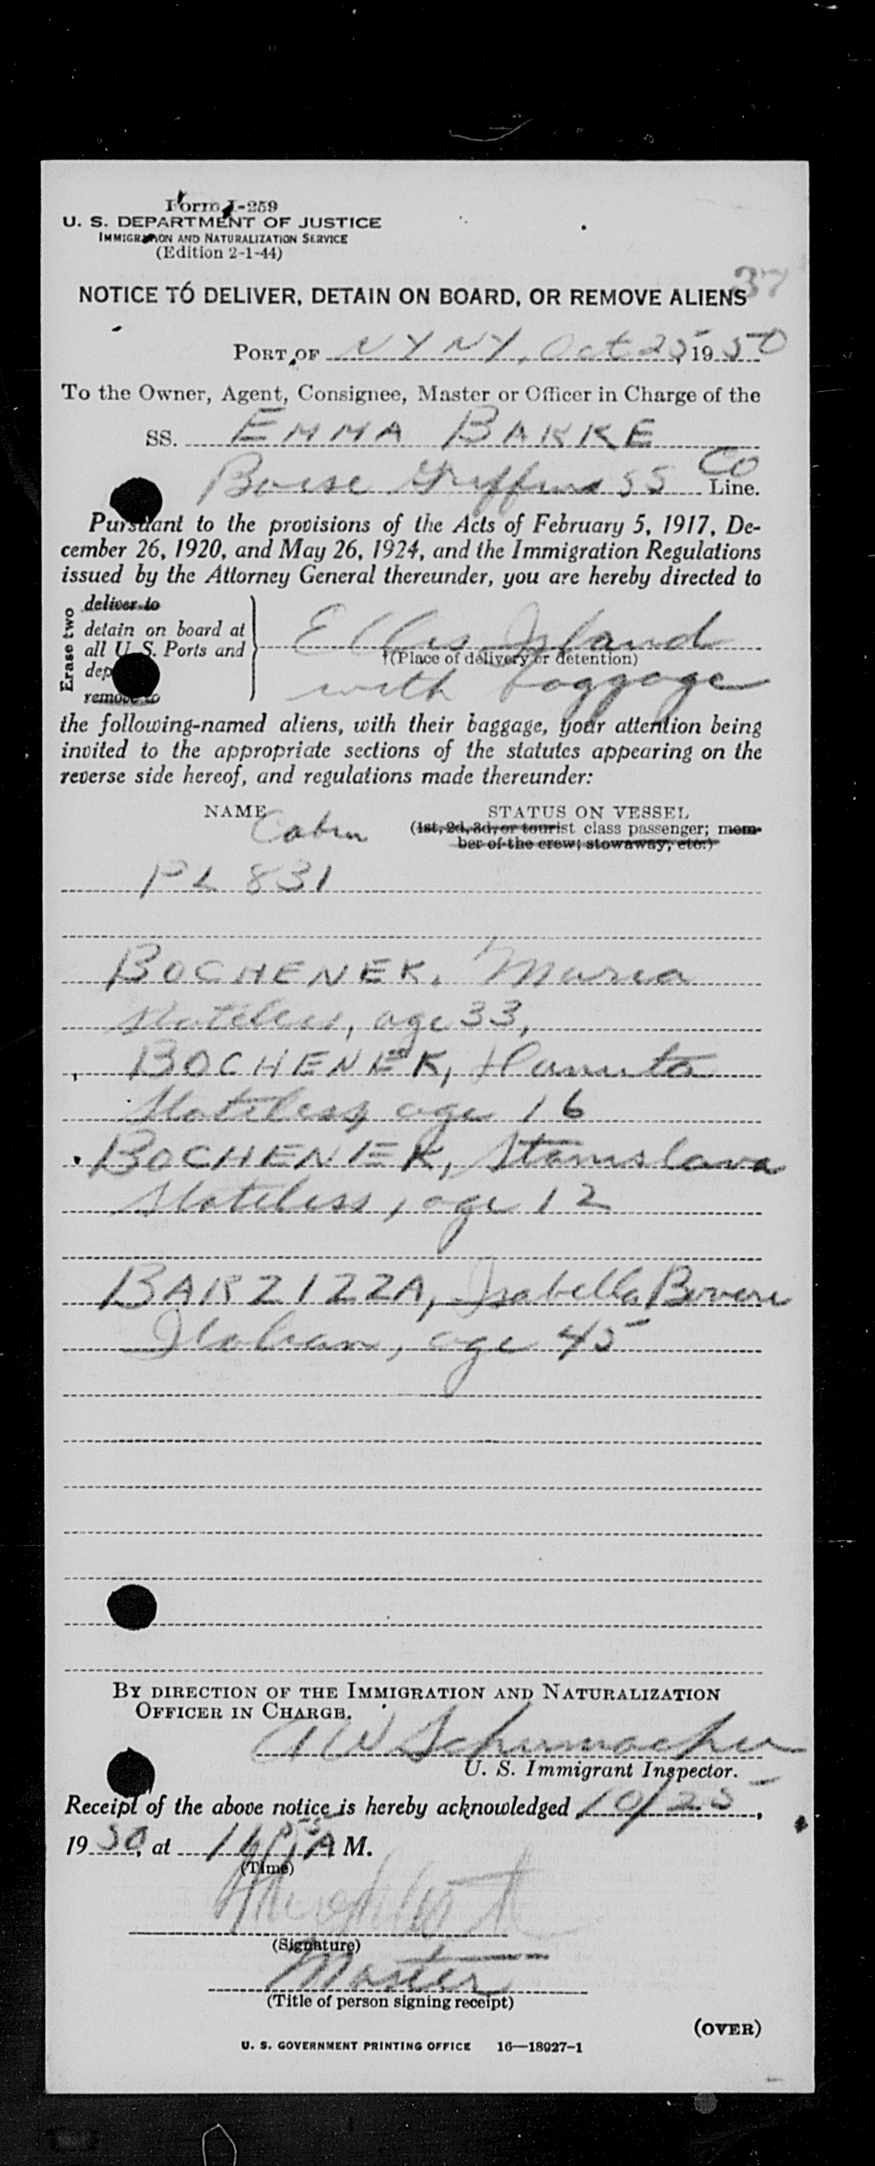 Form I-259
U. S. DEPARTMENT OF JUSTICE
IMMIGRATION AND NATURALIZATION SERVICE
(Edition 2-1-44)
37
NOTICE TO DELIVER, DETAIN ON BOARD, OR REMOVE ALIENS
PORT OF NY NY, Oct 25, 1950
To the Owner, Agent, Consignee, Master or Officer in Charge of the
SS. EMMA BAKKE
Boise Griffin SS Co Line.
Pursuant to the provisions of the Acts of February 5, 1917, De-
cember 26, 1920, and May 26, 1924, and the Immigration Regulations
issued by the Attorney General thereunder, you are hereby directed to
Erase two
deliver to
detain on board at
all U. S. Ports and
dep
remove to
Ellis Island
†(Place of delivery or detention)
with baggage
the following-named aliens, with their baggage, your attention being
invited to the appropriate sections of the statutes appearing on the
reverse side hereof, and regulations made thereunder:
NAME STATUS ON VESSEL
Cabin (1st, 2d, 3d, or tourist class passenger; mem-
ber of the crew; stowaway, etc.)
PL 831
BOCHENEK, Maria
Stateless, age 33,
BOCHENEK, Danuta
Stateless, age 16
BOCHENEK, Stanislava
Stateless, age 12
BARZIZZA, Isabella
Italian, age 45
BY DIRECTION OF THE IMMIGRATION AND NATURALIZATION
OFFICER IN CHARGE.
A W Schumacher
U. S. Immigrant Inspector.
Receipt of the above notice is hereby acknowledged 10/25,
1950, at A M.
(Time)
(Signature)
Master
(Title of person signing receipt)
(OVER)
U. S. GOVERNMENT PRINTING OFFICE 16—18927-1